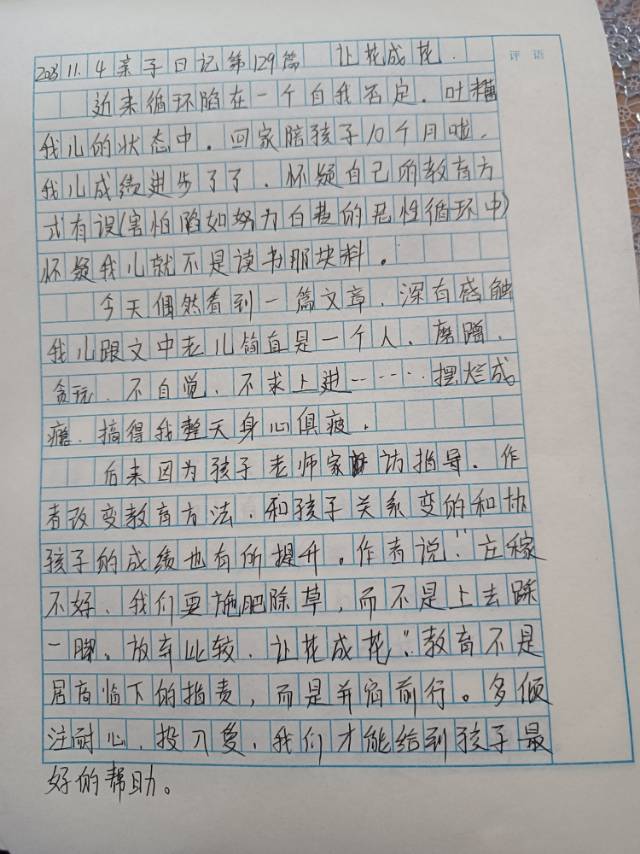 2023 11.4亲子日记第129篇 让花成花.
评语
近来循环陷在一个自我否定.吐糟
我儿的状态中。回家陪孩子10个月啦,
我儿成绩进步了了、怀疑自己的教育方
式有误(害怕陷如努力白费的恶性循环中)
怀疑我儿就不是读书那块料。
今天偶然看到一篇文章,深有感触
我儿跟文中老儿简直是一个人、磨蹭、
贪玩、不自觉、不求上进……摆烂成
瘾、搞得我整天身心俱疲,
后来因为孩子老师家访指导、作
者改变教育方法,和孩子关系变的和协
孩子的成绩也有所提升。作者说:"庄稼
不好、我们要施肥除草,而不是上去踩
一脚。放弃比较、让花成花"。教育不是
居高临下的指责,而是并宿前行。多倾
注耐心、投入爱,我们才能给到孩子最
好的帮助。